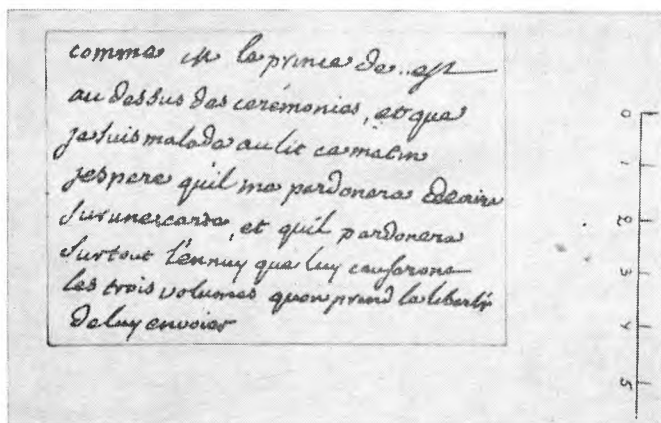 comme M le prince de .. est
au dessus des cerémonies, et que
je suis malade au lit ce matin
jespere quil me pardonera decrire
sur une carte, et quil pardonera
surtout l'ennuy que luy causerons
les trois volumes quon prend la liberté
de luy envoier
0
1
2
3
4
5